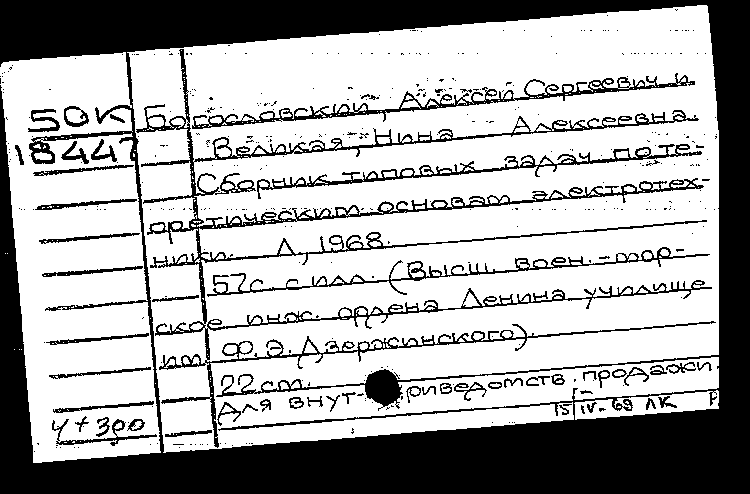 50К Богословский, Алексей Сергеевич и
18447 Великая, Нина Алексеевна.
Сборник типовых задач по те-
оретическим основам электротех-
ники. Л., 1968.
57с. с илл. (Высш. воен.-мор-
ское инж. ордена Ленина училище
им. Ф.Э. Дзержинского).
22 см.
Для внут- риведомств. продажи.
4+300 15/IV-69 ЛК Р